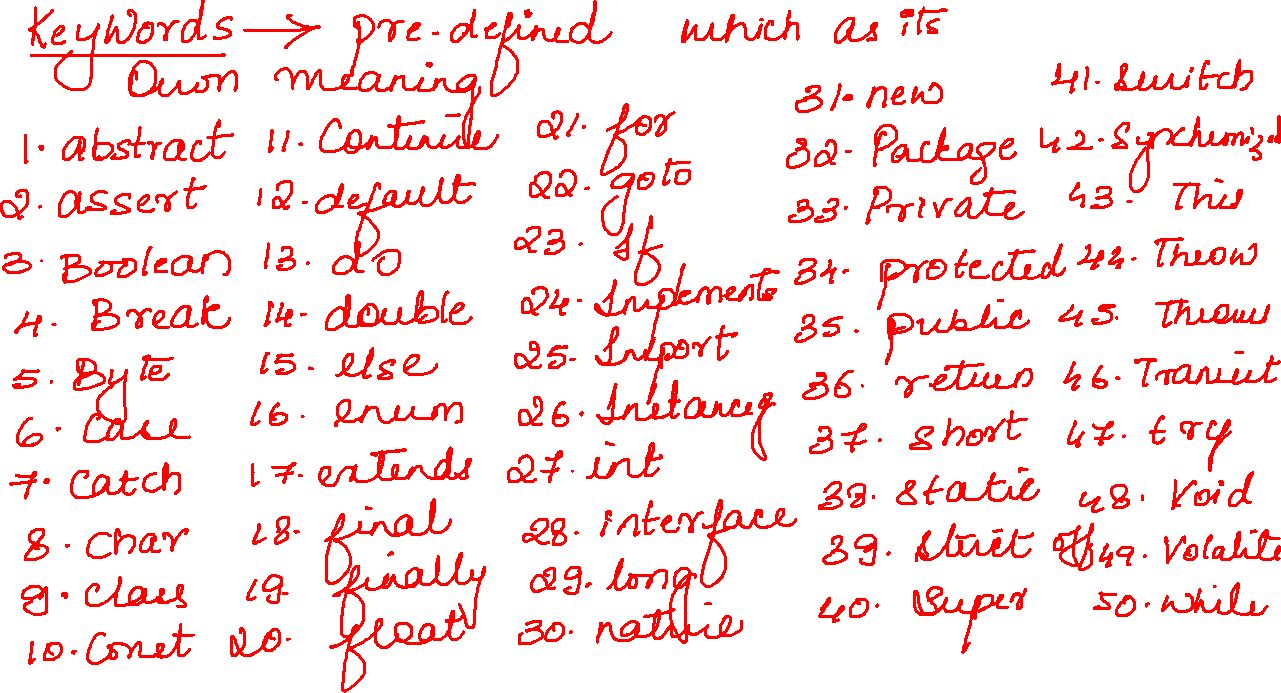 KeyWords → pre-defined which as its
Own meaning
1. abstract
2. assert
3. Boolean
4. Break
5. Byte
6. Case
7. Catch
8. Char
9. Class
10. Const
11. Continue
12. default
13. do
14. double
15. else
16. enum
17. extends
18. final
19. finally
20. float
21. for
22. goto
23. If
24. Implements
25. Import
26. Instanceof
27. int
28. interface
29. long
30. native
31. new
32. Package
33. Private
34. protected
35. public
36. return
37. short
38. static
39. Strict off
40. Super
41. Switch
42. Synchronized
43. This
44. Throw
45. Throws
46. Transient
47. try
48. Void
49. Volatile
50. while